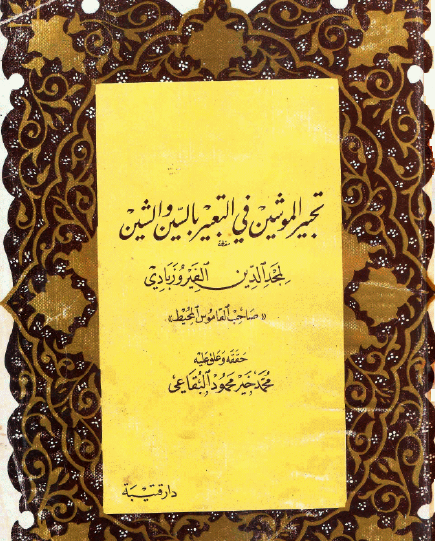 تحبير الموشين في التعبير بالسين والشين
لمجد الدين الفيروزبادي
«صاحب القاموس المحيط»
حققه وعلق عليه
محمد خير محمود البقاعي
دار قتيبة